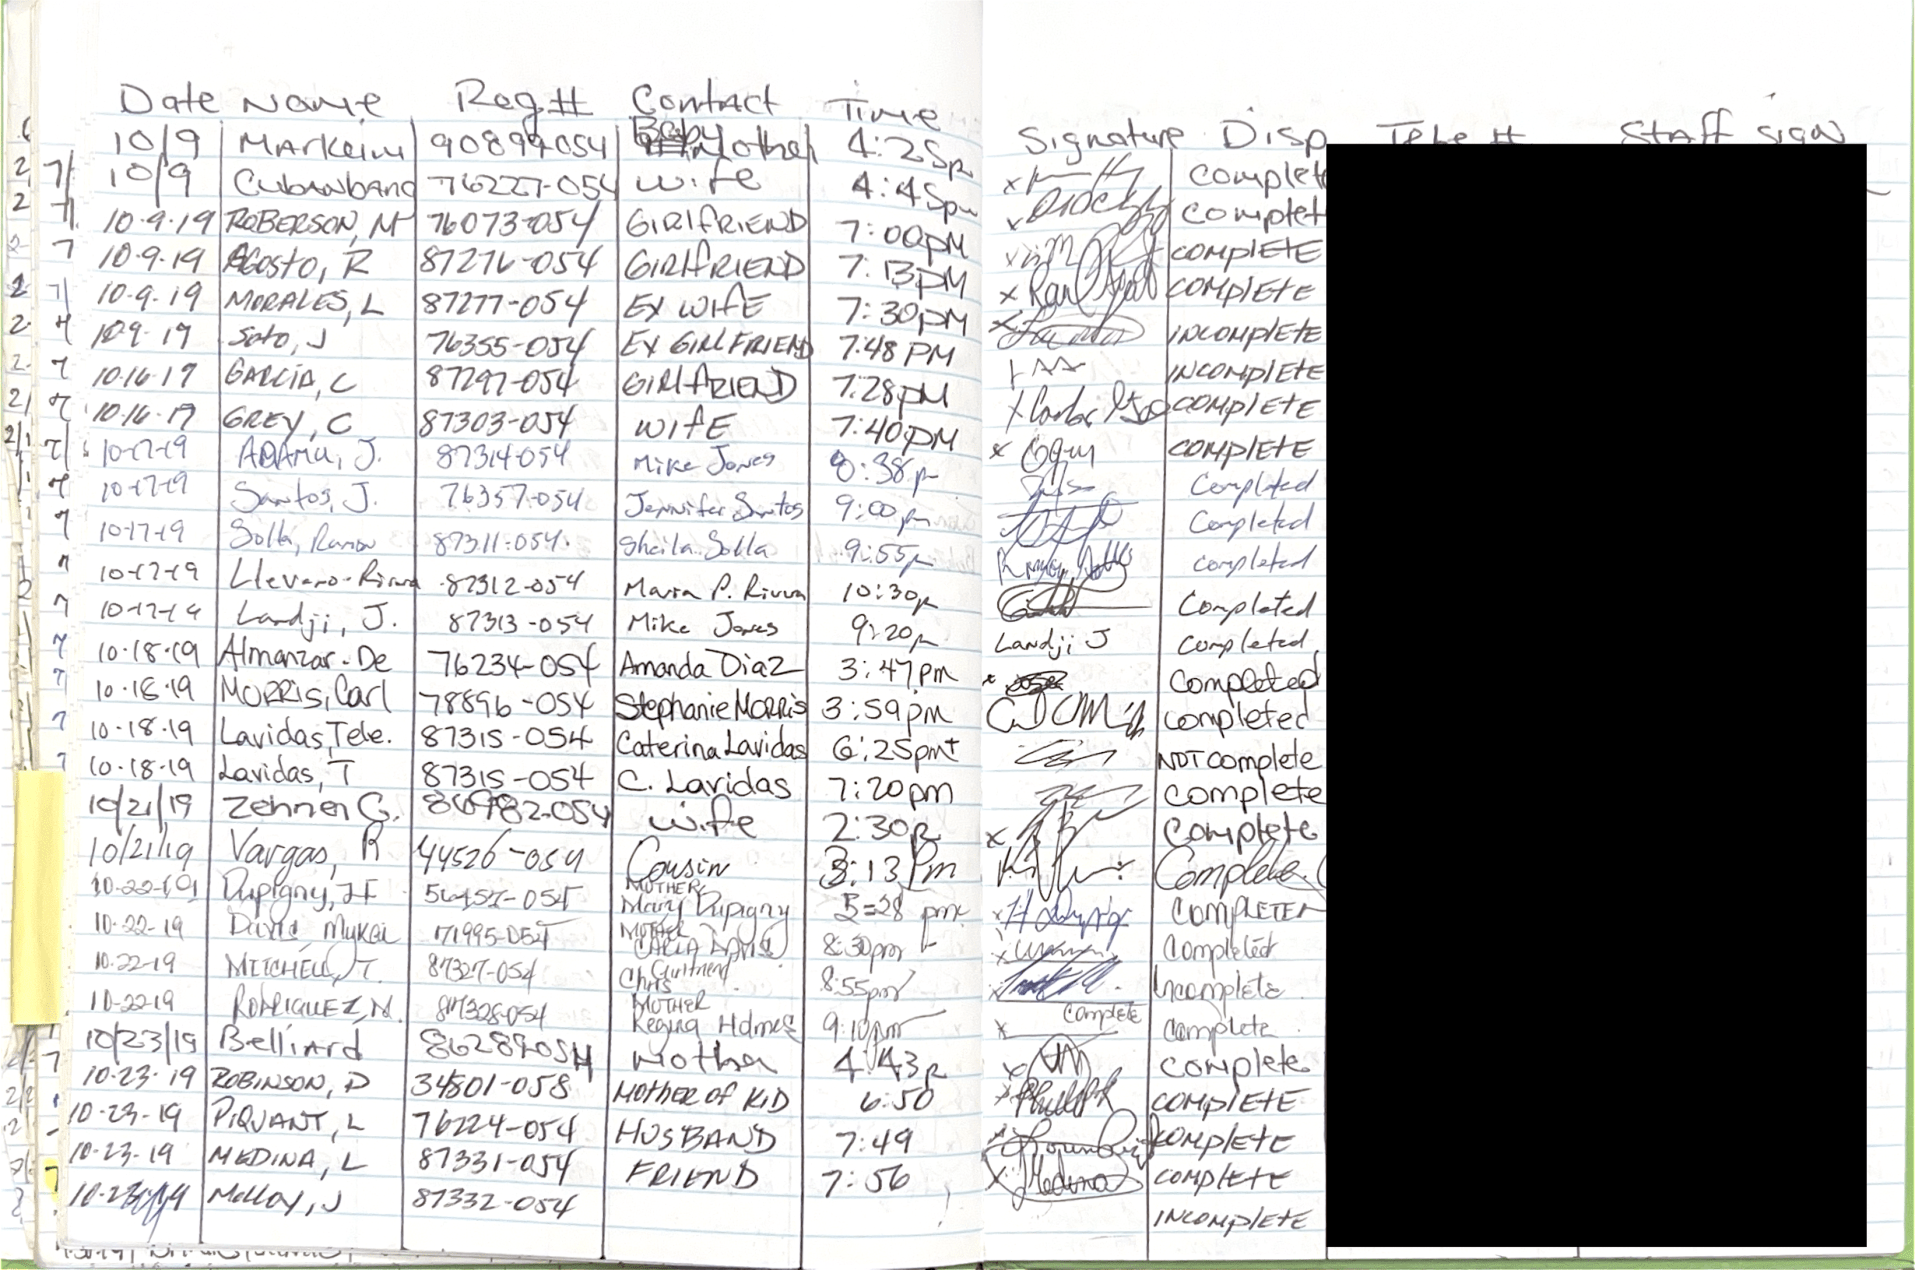 Date Name Reg.# Contact Time Signature Disp Tele # Staff sign
10/9 Markeim 90899-054 Baby Mother 4:25p complete
10/9 Cubanbano 76227-054 wife 4:45pm complet
10.9.19 ROBERSON, M 76073-054 GIRLFRIEND 7:00PM COMPLETE
10.9.19 AGOSTO, R 87276-054 GIRLFRIEND 7:13PM COMPLETE
10.9.19 MORALES, L 87277-054 EX WIFE 7:30PM INCOMPLETE
10.9.19 Soto, J 76355-054 EX GIRLFRIEND 7:48 PM INCOMPLETE
10.16.19 GARCIA, C 87297-054 GIRLFRIEND 7:28PM COMPLETE
10.16.19 GREY, C 87303-054 WIFE 7:40PM COMPLETE
10-17-19 ADAMU, J. 87314-054 Mike Jones 8:38p Completed
10-17-19 Santos, J. 76357-054 Jennifer Santos 9:00pm Completed
10-17-19 Solla, Ramon 87311-054. Sheila Solla 9:55p completed
10-17-19 Llevano-Rivera 87312-054 Maria P. Rivera 10:30p Completed
10-17-19 Landji, J. 87313-054 Mike Jones 9:20p Landji J Completed
10.18.19 Almanzar-De 76234-054 Amanda Diaz 3:47pm completed
10.18.19 MORRIS, Carl 78896-054 Stephanie MORRIS 3:59pm completed
10.18.19 Lavidas, Tele. 87315-054 Caterina Lavidas 6:25pm NOT complete
10.18.19 Lavidas, T 87315-054 C. Lavidas 7:20pm complete
10/21/19 Zehner G. 86982-054 wife 2:30p complete
10/21/19 Vargas, R 44526-054 Cousin 3:13 Pm Complete.
MOTHER
10-22-19 Dupigny, H 56457-054 Mary Dupigny 3=28 pm H Dupigny COMPLETED
MOTHER
10-22-19 Davis, Mykai 71995-054 CARLA DAVIS 8:30pm Completed
Girlfriend
10-22-19 MITCHELL, T. 87327-054 Chris 8:55pm Incomplete.
MOTHER complete
10-22-19 RODRIGUEZ, N. 87328-054 Regina Holmes 9:10pm complete
10/23/19 Belliard 86289-054 Mother 4:43p complete
10.23.19 ROBINSON, D 34801-058 MOTHER OF KID 6:50 COMPLETE
10.23-19 PIQUANT, L 76224-054 HUSBAND 7:49 COMPLETE
10.23.19 MEDINA, L 87331-054 FRIEND 7:56 Medina COMPLETE
Molloy, J 87332-054 INCOMPLETE